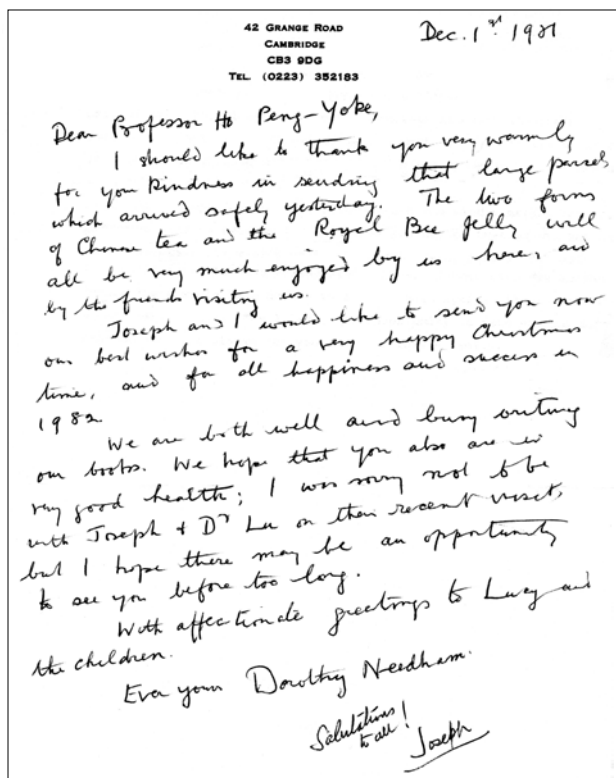 42 GRANGE ROAD
CAMBRIDGE
CB3 9DG
TEL. (0223) 352183
Dec. 1st 1981
Dear Professor Ho Peng-Yoke,
I should like to thank you very warmly
for your kindness in sending that large parcel
which arrived safely yesterday. The two forms
of Chinese tea and the Royal Bee Jelly will
all be very much enjoyed by us here, and
by the friends visiting us.
Joseph and I would like to send you now
our best wishes for a very happy Christmas
time, and for all happiness and success in
1982.
We are both well and busy writing
our books. We hope that you also are in
very good health; I was sorry not to be
with Joseph & Dr Lu on their recent visit,
but I hope there may be an opportunity
to see you before too long.
With affectionate greetings to Lucy and
the children.
Ever yours Dorothy Needham.
Salutations
to all!
Joseph